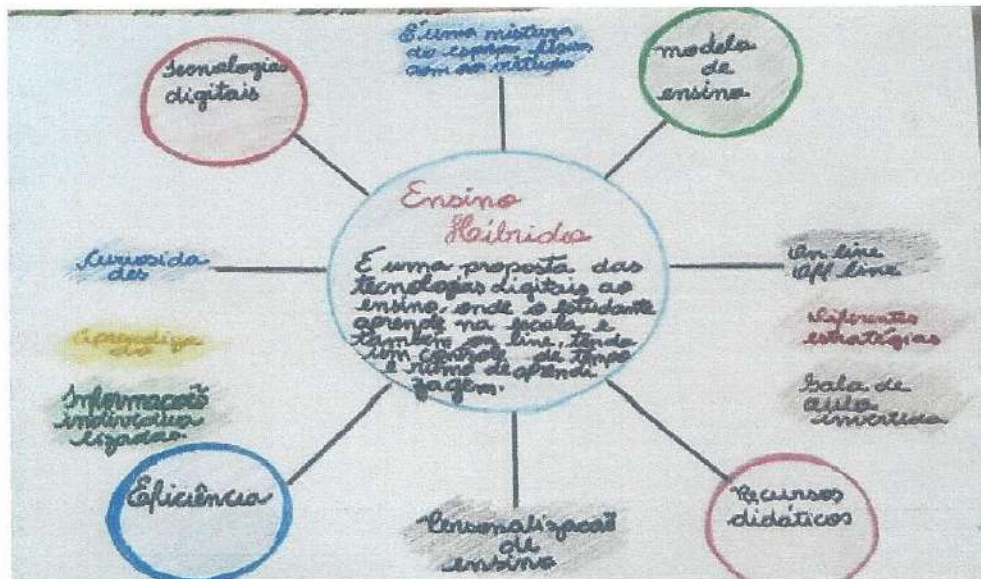 Tecnologias
digitais
É uma mistura
do espaço físico
com os virtuais
modelo
de
ensino
Ensino
Híbrido
É uma proposta das
tecnologias digitais ao
ensino, onde o estudante
aprende na escola, e
também on line, tendo
um controle de tempo
e ritmo de aprendi
zagem.
Curiosida
des
Aprendiza
do
Informação
individua
lizadas.
On line
Off line
Diferentes
estratégias
Sala de
aula
invertida
Eficiência
Personalização
de
ensino
Recursos
didáticos